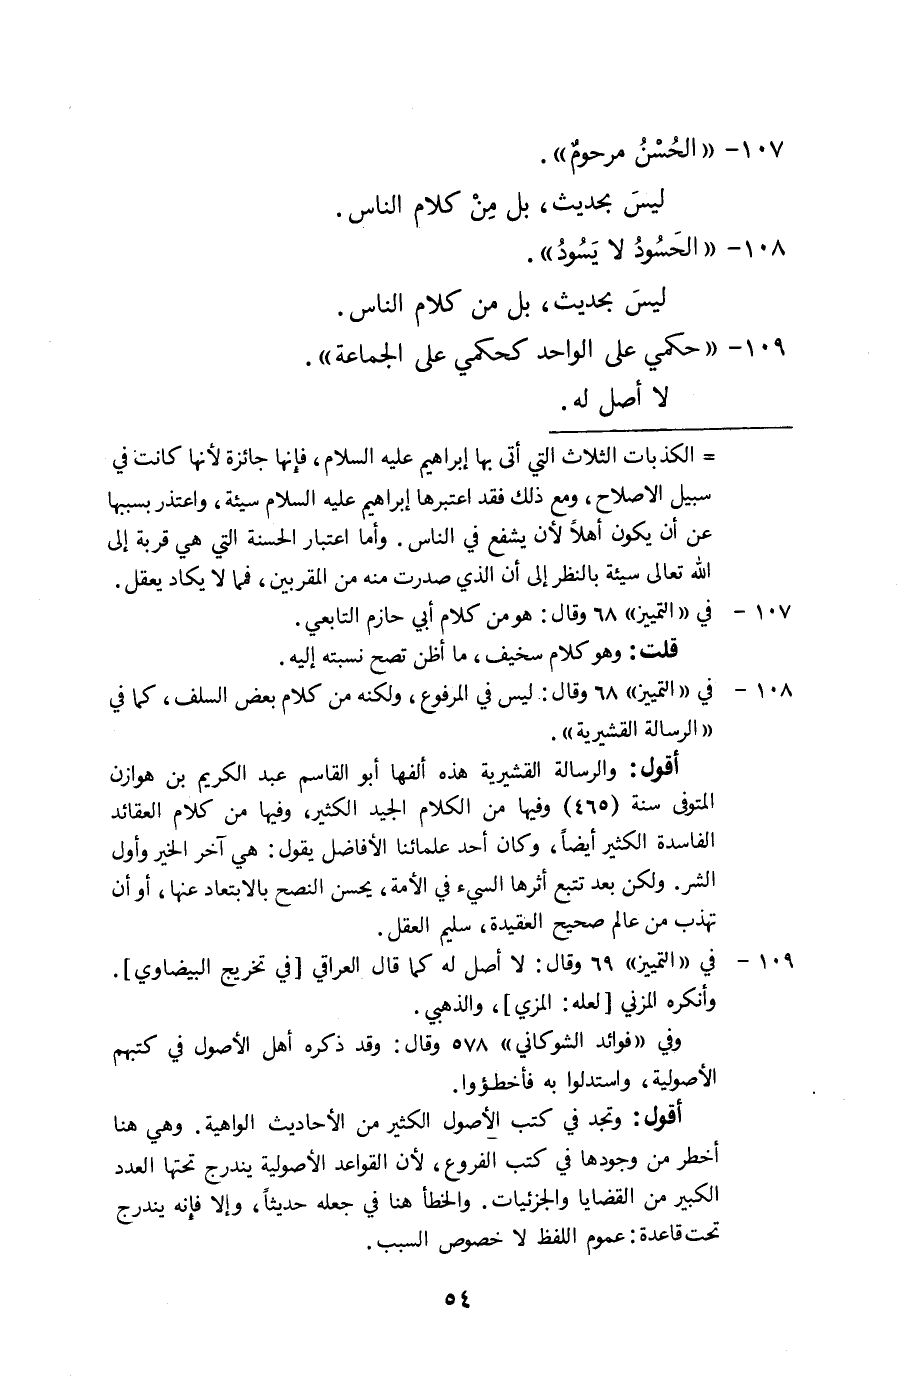 ١٠٧- «الحُسْنُ مرحومٌ».
ليسَ بحديث، بل مِنْ كلام الناس.
١٠٨- «الحَسُودُ لا يَسُودُ».
ليسَ بحديث، بل من كلام الناس.
١٠٩- «حكمي على الواحد كحكمي على الجماعة».
لا أصل له.
= الكذبات الثلاث التي أتى بها إبراهيم عليه السلام، فإنها جائزة لأنها كانت في
سبيل الاصلاح، ومع ذلك فقد اعتبرها إبراهيم عليه السلام سيئة، واعتذر بسببها
عن أن يكون أهلاً لأن يشفع في الناس. وأما اعتبار الحسنة التي هي قربة إلى
الله تعالى سيئة بالنظر إلى أن الذي صدرت منه من المقربين، فما لا يكاد يعقل.
١٠٧ - في «التمييز» ٦٨ وقال: هو من كلام أبي حازم التابعي.
قلت: وهو كلام سخيف، ما أظن تصح نسبته إليه.
١٠٨ - في «التمييز» ٦٨ وقال: ليس في المرفوع، ولكنه من كلام بعض السلف، كما في
«الرسالة القشيرية».
أقول: والرسالة القشيرية هذه ألفها أبو القاسم عبد الكريم بن هوازن
المتوفى سنة (٤٦٥) وفيها من الكلام الجيد الكثير، وفيها من كلام العقائد
الفاسدة الكثير أيضاً، وكان أحد علمائنا الأفاضل يقول: هي آخر الخير وأول
الشر. ولكن بعد تتبع أثرها السيء في الأمة، يحسن النصح بالابتعاد عنها، أو أن
تهذب من عالم صحيح العقيدة، سليم العقل.
١٠٩ - في «التمييز» ٦٩ وقال: لا أصل له كما قال العراقي [في تخريج البيضاوي].
وأنكره المزني [لعله: المزي]، والذهبي.
وفي «فوائد الشوكاني» ٥٧٨ وقال: وقد ذكره أهل الأصول في كتبهم
الأصولية، واستدلوا به فأخطؤوا.
أقول: وتجد في كتب الأصول الكثير من الأحاديث الواهية. وهي هنا
أخطر من وجودها في كتب الفروع، لأن القواعد الأصولية يندرج تحتها العدد
الكبير من القضايا والجزئيات. والخطأ هنا في جعله حديثاً، وإلا فإنه يندرج
تحت قاعدة: عموم اللفظ لا خصوص السبب.
٥٤